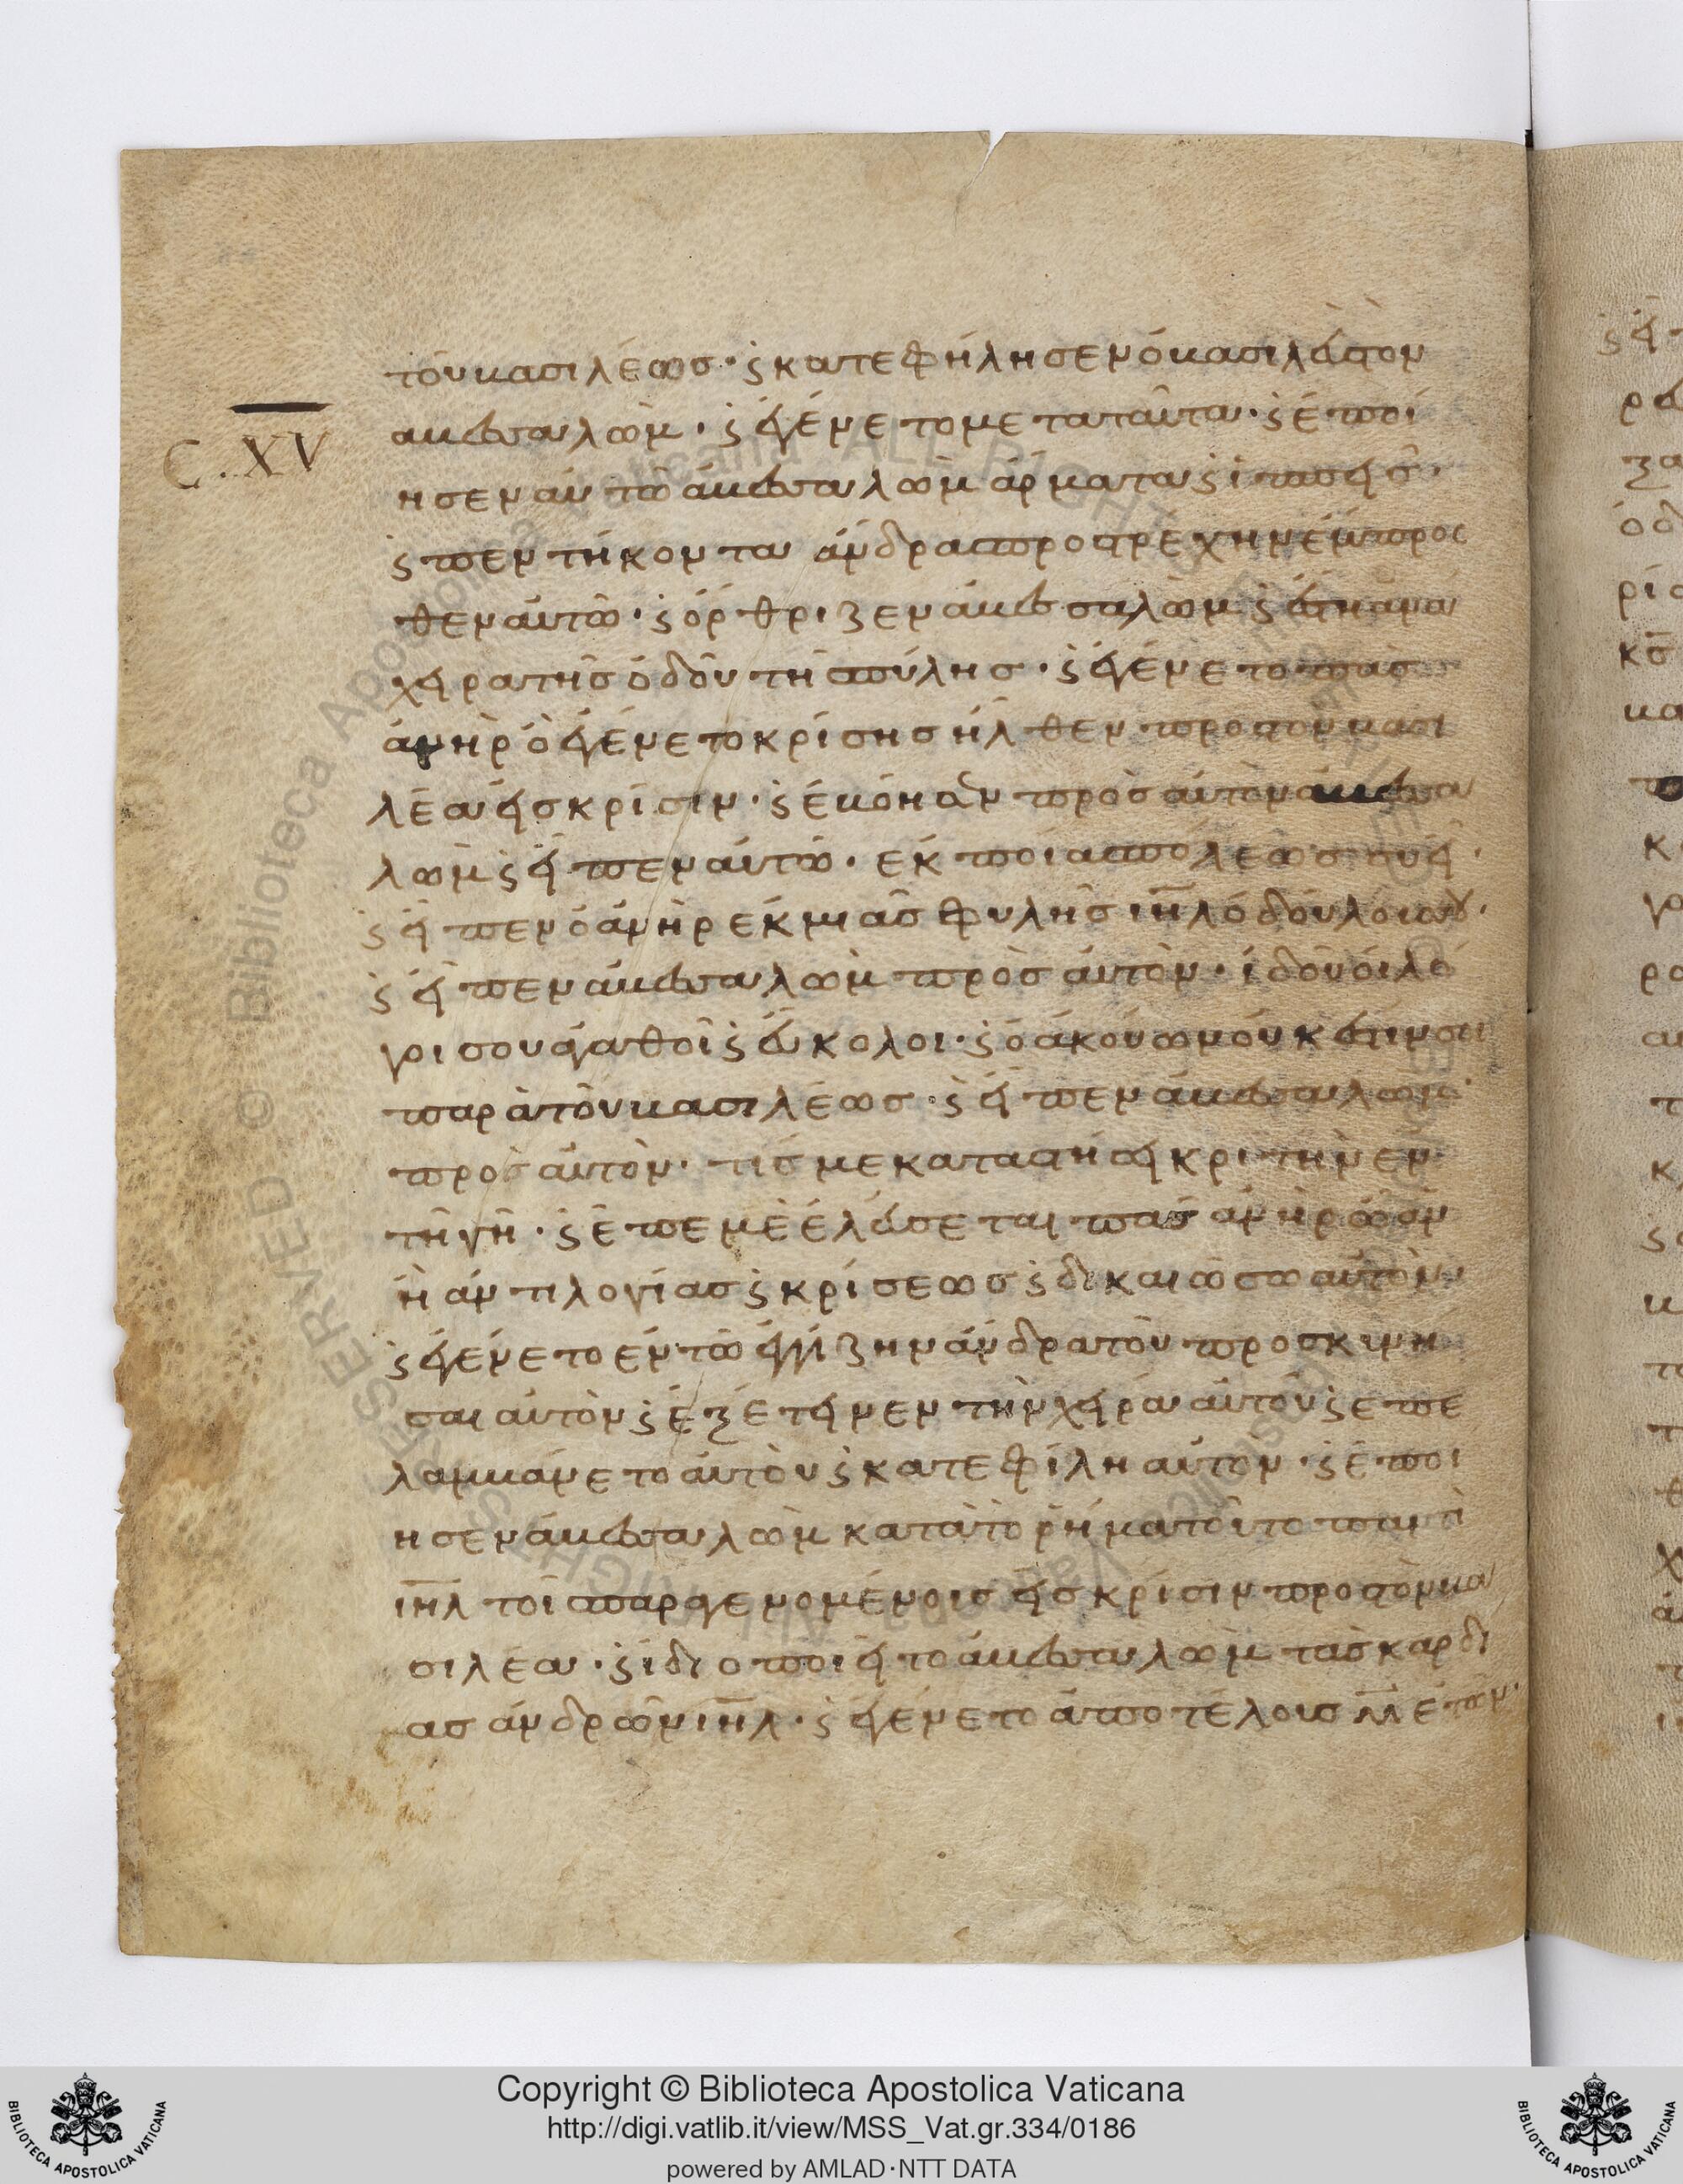 τοῦ βασιλέως· ϛ κατεφήλησεν ὁ βασιλεὺς τὸν
αβεσσαλώμ· ϛ ἐγένετο μετα ταῦτα· ϛ ἐποί
C. XV
ησεν αὐτῶ ἀβεσσαλώμ ἁρματα ϛ ἱππεῖς·
ϛ πεντήκοντα ἄνδρας προτρέχην ἔμπροσ
θεν αὐτῶ· ϛ ὄρθριζεν ἀβεσσαλώμ ϛ ἔστη ἀνα
χεῖρα τῆς ὁδοῦ τῆς πύλης· ϛ ἐγένετο πᾶς
ἀνὴρ ὃ ἐγένετο κρίσης ἦλθεν προς τον βασι
λέα εἰς κρίσιν· ϛ ἐβόησεν πρὸς αὐτὸν ἀβεσσα
λώμ ϛ εἶπεν αὐτῶ· εκ ποίας πόλεως συ εἶ·
ϛ εἶπεν ὁ ἀνὴρ εκ μιᾶς φυλῆς ιηλ ὁ δοῦλός σου·
ϛ εἶπεν ἀβεσσαλώμ πρὸς αὐτὸν· ἰδοῦ οἱ λό
γοι σου ἀγαθοῖ ϛ εὔκολοι· ϛ ὁ ἀκούων οὐκ ἔστιν σοι
παρὰ τοῦ βασιλέως· ϛ εἶπεν ἀβεσσαλώμ
προς αὐτὸν· τίς με καταστήσει κριτὴν εν
τῆ γῆ· ϛ ἐπ ἐμὲ ἐλεύσεται πᾶς ἀνὴρ ὧ ἂν
ἦ ἀντιλογίας ϛ κρίσεως ϛ δικαιώσω αὐτὸν·
ϛ ἐγένετο εν τῶ ἐγγίζην ἄνδρα τοῦ προσκυνη
σαι αὐτὸν ϛ ἐξέτεινεν τὴν χεῖρα αὐτοῦ ϛ επε
λαμβάνετο αὐτοῦ ϛ κατεφίλη αὐτὸν· ϛ ἐποι
ησεν ἀβεσσαλώμ κατὰ τὸ ῥῆμα τοῦτο παντὶ
ιηλ τοῖς παραγενομένοις εἰς κρίσιν προς τὸν βα
σιλέα· ϛ ἰδιοποιεῖτο ἀβεσσαλώμ τὰς καρδι
ας ἀνδρῶν ιηλ· ϛ ἐγένετο ἀπο τέλους μ ἐτῶν·
Copyright © Biblioteca Apostolica Vaticana
http://digi.vatlib.it/view/MSS_Vat.gr.334/0186
powered by AMLAD·NTT DATA
BIBLIOTECA APOSTOLICA VATICANA
BIBLIOTECA APOSTOLICA VATICANA